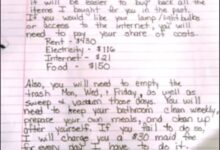 it will be easier to buy back all the
items I bought for you in the past.
If you would like your lamp/light bulbs
or access to the internet, you will
need to pay your share of costs.
Rent - $430
Electricity - $116
Internet - $21
Food - $150
Also, you will need to empty the
trash Mon, Wed, & Friday, as well as
sweep & vacuum those days. You will
need to keep your bathroom clean weekly,
prepare your own meals, and clean up
after yourself. If you fail to do so,
I will charge you a $30 maid fee
for every day I have to do it.